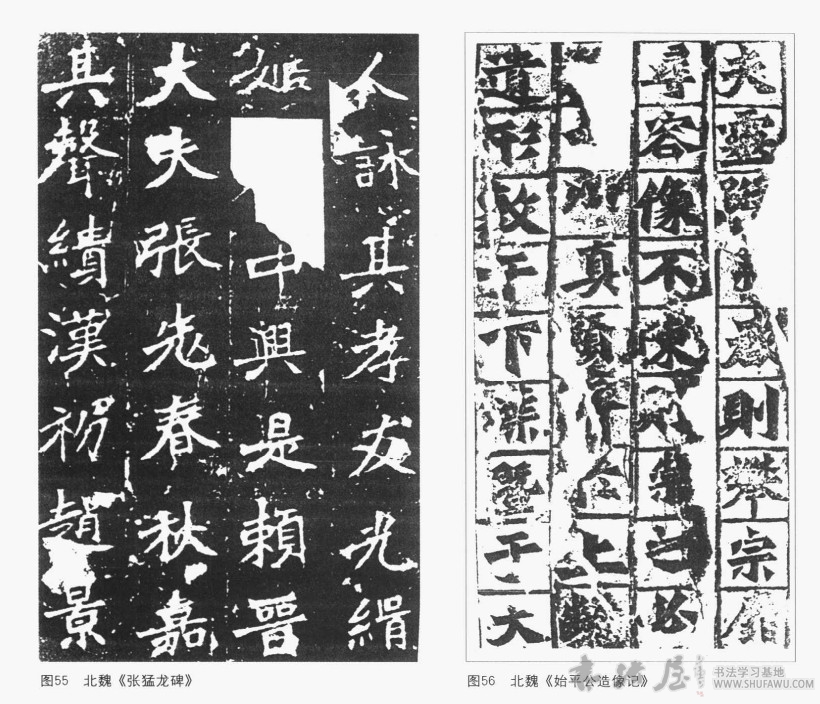 人詠其孝友光緝
姬中興是賴晉
大夫張老春秋嘉
其聲績漢初趙景
夫靈蹤啟則攀宗靡
尋容像不陳則崇之必
真顏於上齡
遺形敷于下葉暨于大
图55 北魏《张猛龙碑》
图56 北魏《始平公造像记》
书法屋
书法学习基地
WWW.SHUFAWU.COM